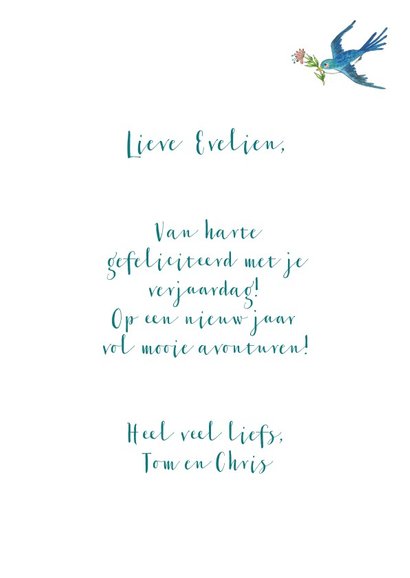 Lieve Evelien,
Van harte
gefeliciteerd met je
verjaardag!
Op een nieuw jaar
vol mooie avonturen!
Heel veel liefs,
Tom en Chris